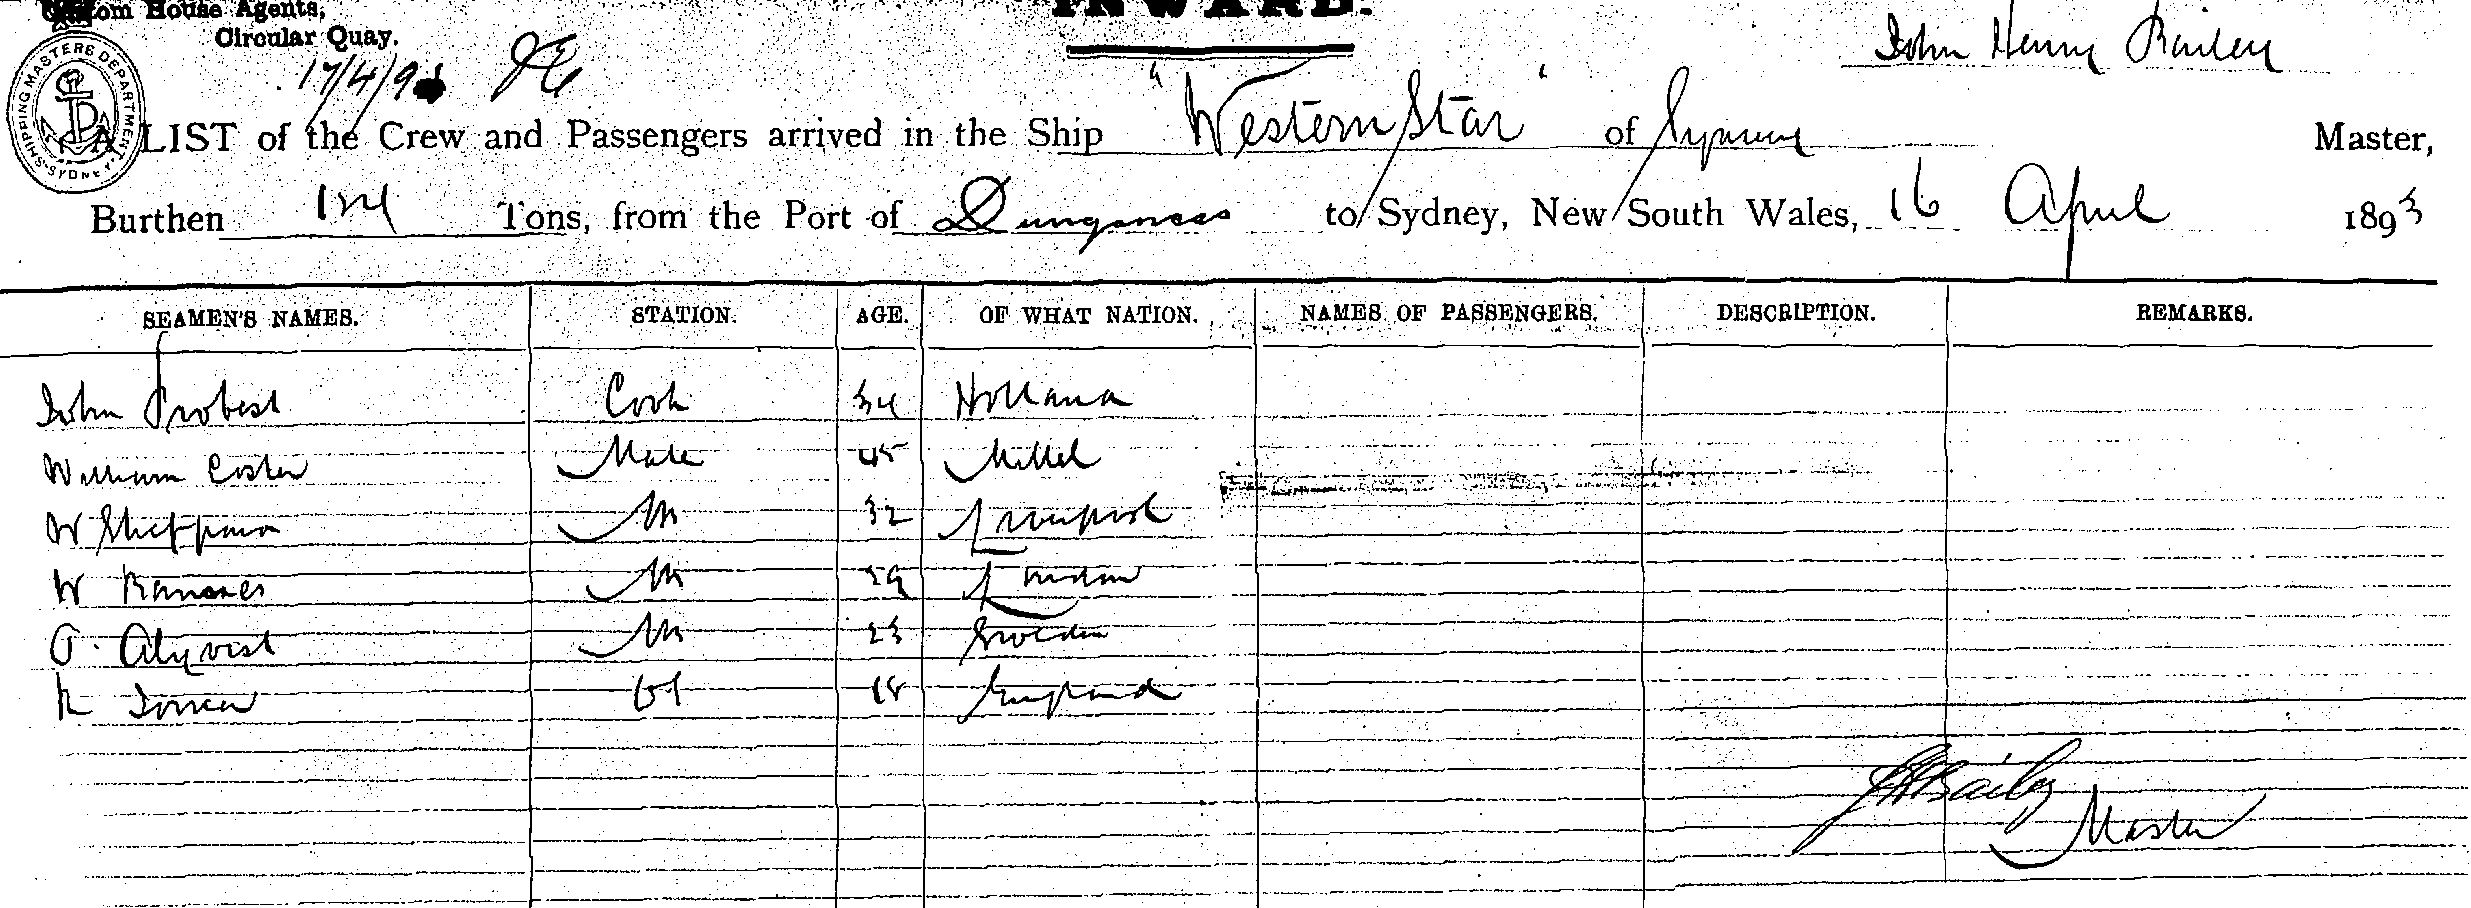 Custom House Agents,
Circular Quay.
INWARD.
John Henry Bailey
17/4/93
SHIPPING MASTERS DEPARTMENT SYDNEY
A LIST of the Crew and Passengers arrived in the Ship "Western Star" of Sydney Master,
Burthen Tons, from the Port of Dungeness to Sydney, New South Wales, 16 April 1893
SEAMEN'S NAMES. STATION. AGE. OF WHAT NATION. NAMES OF PASSENGERS. DESCRIPTION. REMARKS.
John Probest Cook 34 Holland
William Coster Mate 45
W Sheppard AB 32 Liverpool
W AB 29 London
AB 23 Sweden
18 England
JHBailey
Master